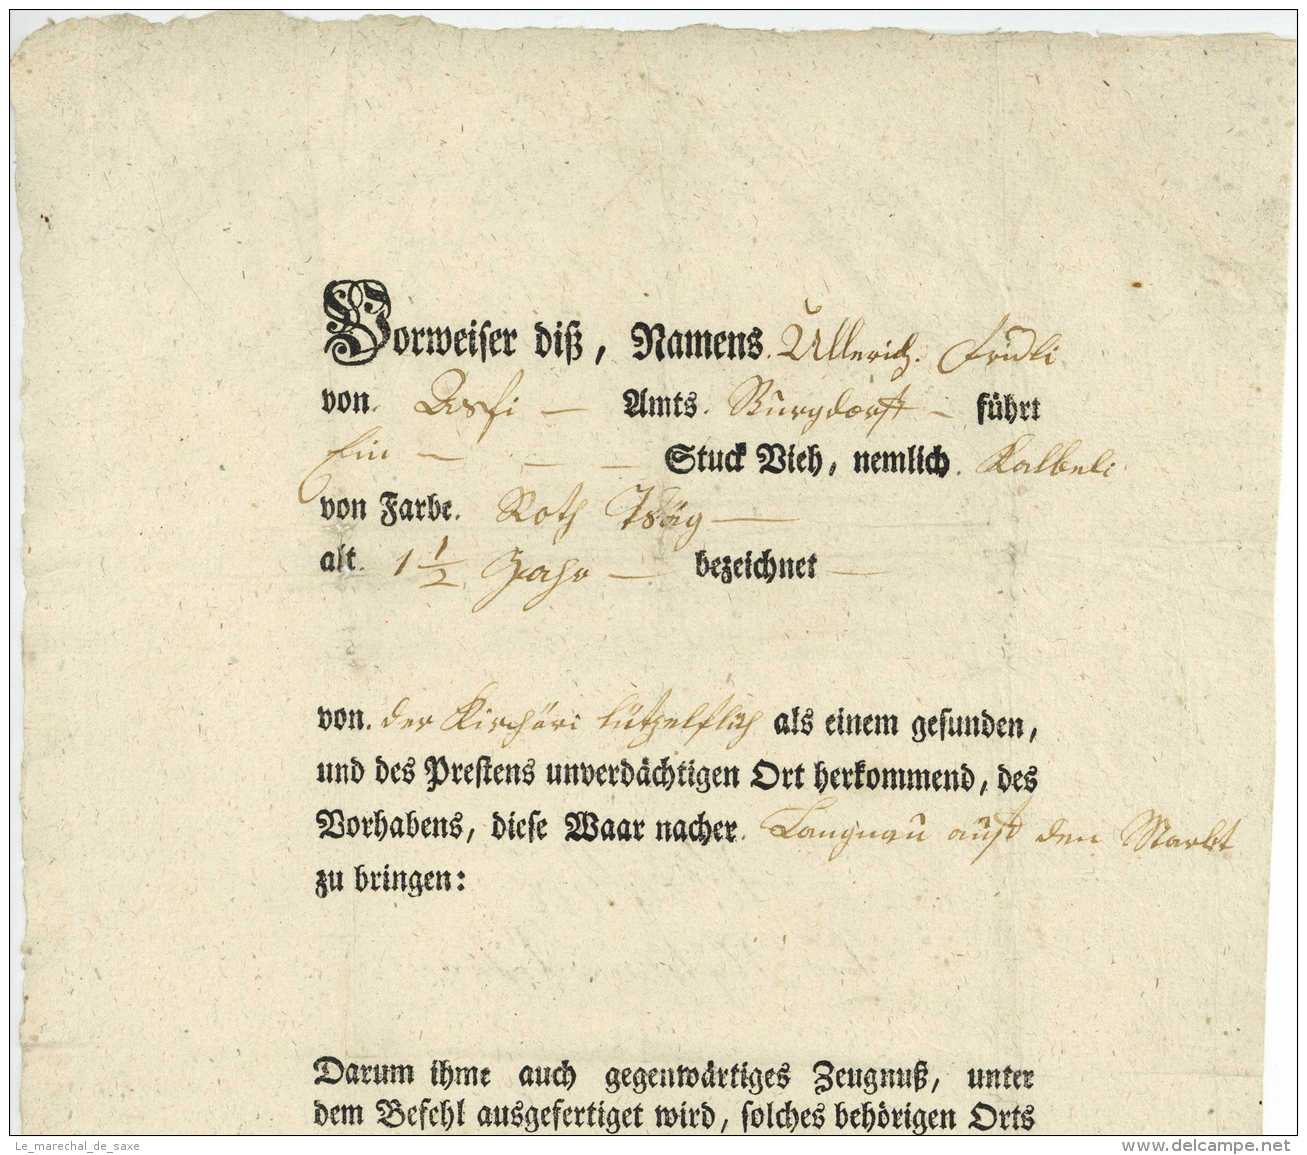 Vorweiser diß, Namens. Ullerich. Fridli
von. — Amts. Burgdorff — führt
Ein — — — Stuck Vieh, nemlich. Kalbeli
von Farbe. Roth —
alt. 1 1/2 Jahr — bezeichnet —
von. der Kirchöri lützelflüh als einem gesunden,
und des Prestens unverdächtigen Ort herkommend, des
Vorhabens, diese Waar nacher. Langnau auff den Markt
zu bringen:
Darum ihme auch gegenwärtiges Zeugnuß, unter
dem Befehl ausgefertiget wird, solches behörigen Orts
Le_marechal_de_saxe
www.delcampe.net